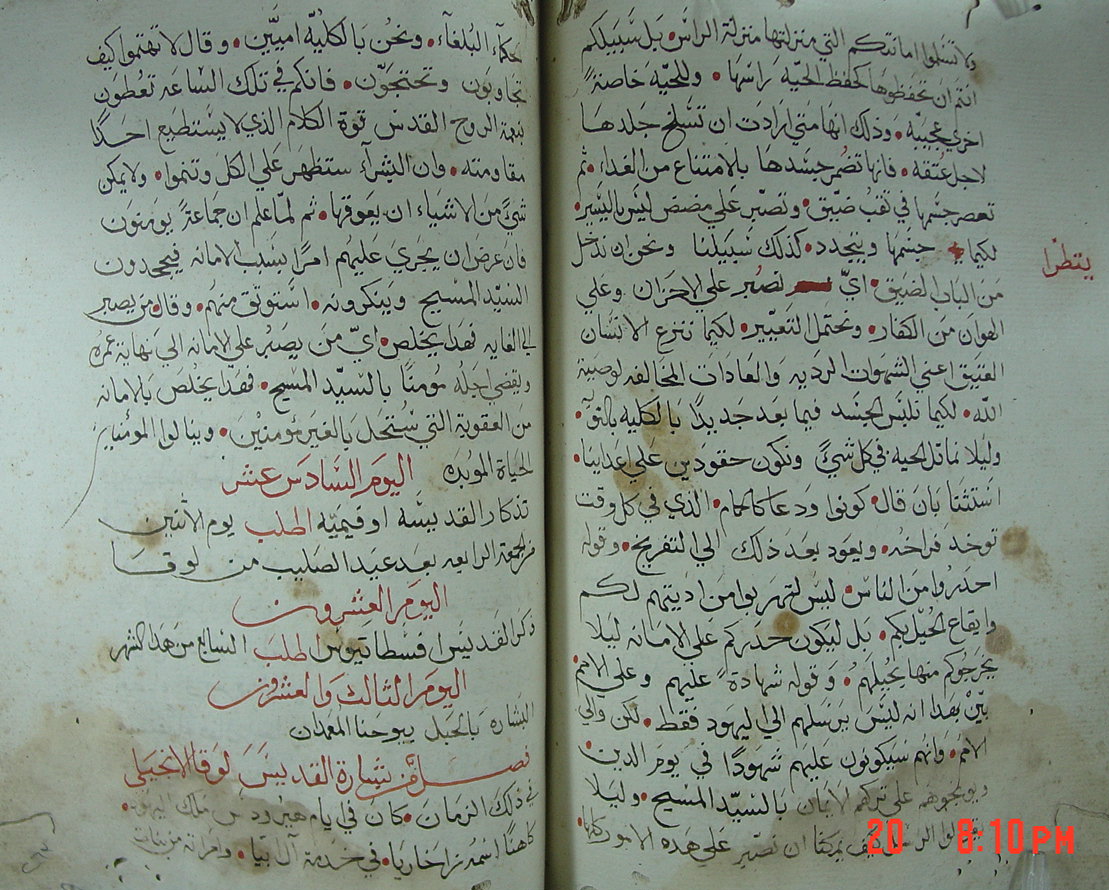 ولا تسلموا امانتكم التي منزلتها منزلة الراس بل سبيلكم
انتم ان تحفظوها كحفظ الحيّه راسها • وللحيّه خاصة
اخرى عجيبه • وذلك انها متى ارادت ان تسلخ جلدها
لاجل عتقه • فانها تضمر جسدها بالامتناع من الغداء • ثم
تعصر جسمها في ثقب ضيّق • وتصبر على مضض ليس باليسير •
لكيما جسمها ويتجدد • كذلك سبيلنا ونحن ان ندخل
يتطرا
من الباب الضيق • ايّ نصبر على الاحزان وعلى
الهوان من الكفار • ونحتمل التعيير • لكيما ننزع الانسان
العتيق اعني الشهوات الرديه والعادات المخالفه لوصية
الله • لكيما نلبس الجسد فيما بعد جديدًا بالكليه بالتقى •
وليلا نماثل الحيه في كل شيً ونكون حقودين على اعداينا •
استثنا بان قال كونوا ودعا كالحمام • الذي في كل وقت
توخد فراخه • ويعود بعد ذلك الى التفريخ • وقوله
احدروا من الناس • ليس لتهربوا من اديتهم لكم
وايقاع الحيل بكم • بل ليكون حدركم على الامانه ليلا
يخرجوكم منها بحيلهم • وقوله شهادة عليهم وعلى الامم •
بيّن بهدا انه ليس يرسلهم الى اليهود فقط • لكن والى
الامم • وانهم سيكونون عليهم شهودًا في يوم الدين •
ويوبخوهم على تركهم الايمان بالسيّد المسيح • وليلا
يقولوا كيف يمكنا ان نصبر على هده الامور كلها •
الحكمآء البلغآء • ونحن بالكليّه اميّين • وقال لا تهتموا كيف
تجاوبون وتحتجوّن • فانكم في تلك الساعه تعطون
بنعمة الروح القدس قوة الكلام الذي لا يستطيع احدًا
مقاومته • وان البشرآء ستظهر على الكل وتنموا • ولا يمكن
شيً من الاشياء ان يعوقها • ثم لمّا علم ان جماعةً يومنون
فان عرض ان يجرى عليهم امرًا بسبب الامانه فيجحدون
السيّد المسيح وينكرونه • استوثق منهم • وقال من يصبر
الى الغايه فهدا يخلص • ايّ من يصبر على الامانه الى نهاية عمره
ويقضى اجله مومنًا بالسيّد المسيح • فهدا يخلص بالامانه
من العقوبة التي ستحل بالغير مومنين • وينالوا المومنين
الحياة الموبده اليوم السادس عشر
تذكار القديسه اوفيميّه اطلب يوم الاثنين
من الجمعة الرابعه بعد عيد الصليب من لوقا
اليوم العشرون
ذكر القديس افسطاتيوس اطلب السابع من هدا الشهر
اليوم الثالث والعشرون
البشاره بالحبل بيوحنا المعمدان
فصل من بشارة القديس لوقا الانجيلي
في ذلك الزمان • كان في ايام هيرودس ملك اليهود •
كاهنًا اسمه زاخاريا • في خدمة آل بيا • وامرانه من بنات
20 8:10 PM